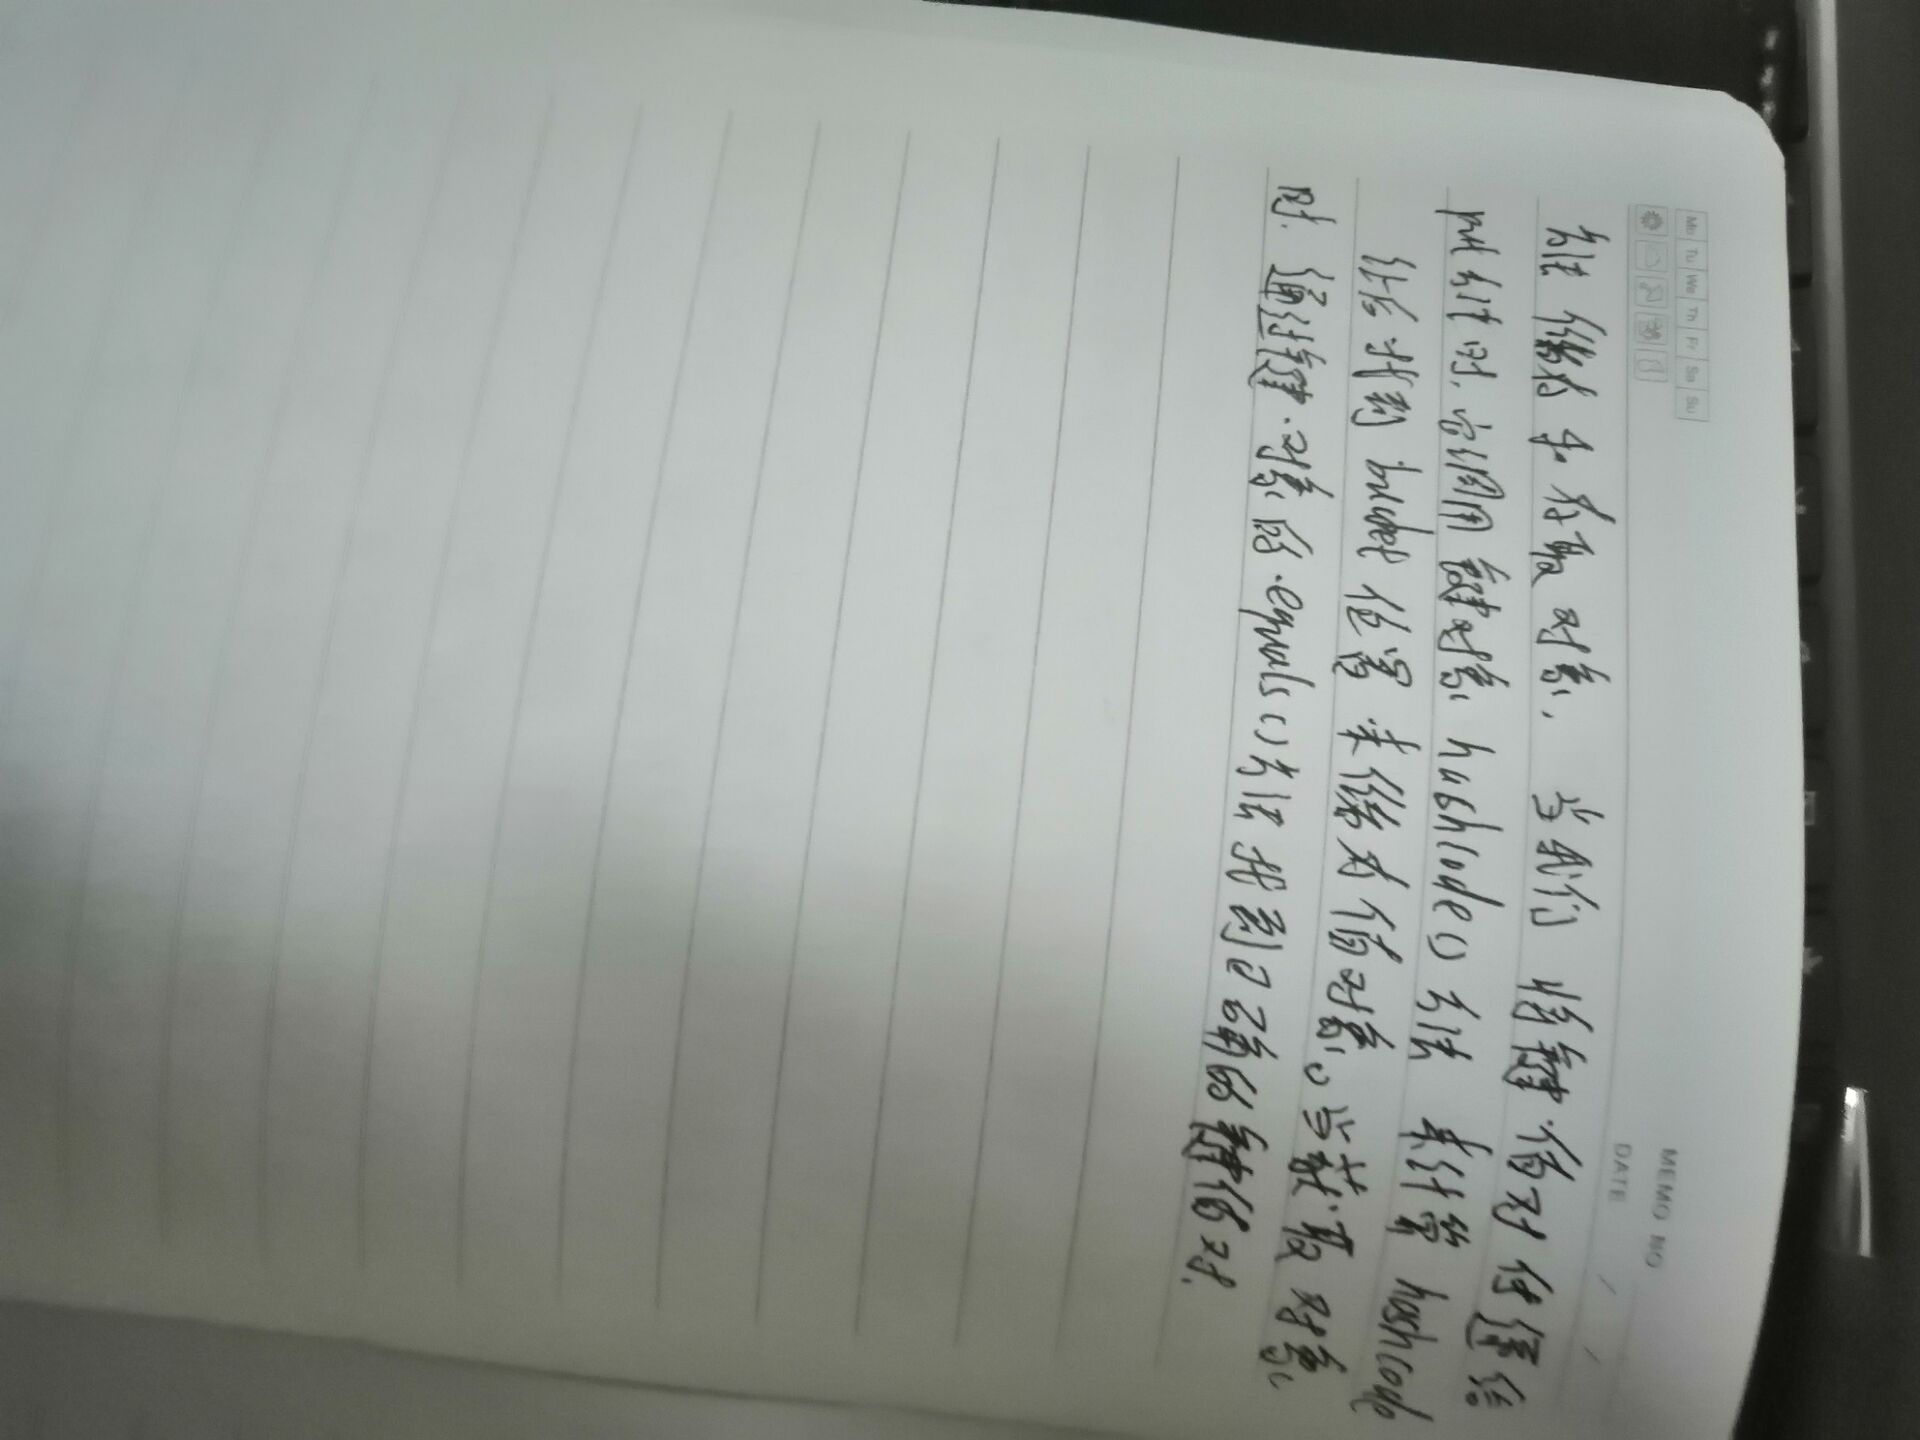 Mo Tu We Th Fr Sa Su
MEMO NO
DATE / /
能储存和获取对象,当我们将键值对传递给
put方法时,它调用键对象hashcode()方法来计算hashcode
然后找到bucket位置来储存值对象。当获取对象
时,通过键对象的.equals()方法找到正确的键值对.